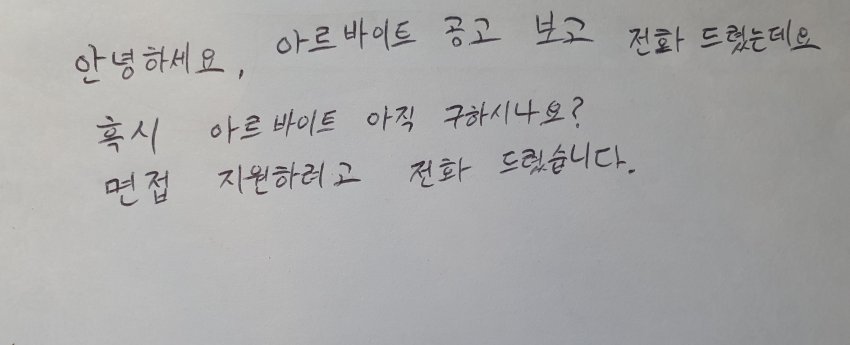 안녕하세요, 아르바이트 공고 보고 전화 드렸는데요
혹시 아르바이트 아직 구하시나요?
면접 지원하려고 전화 드렸습니다.